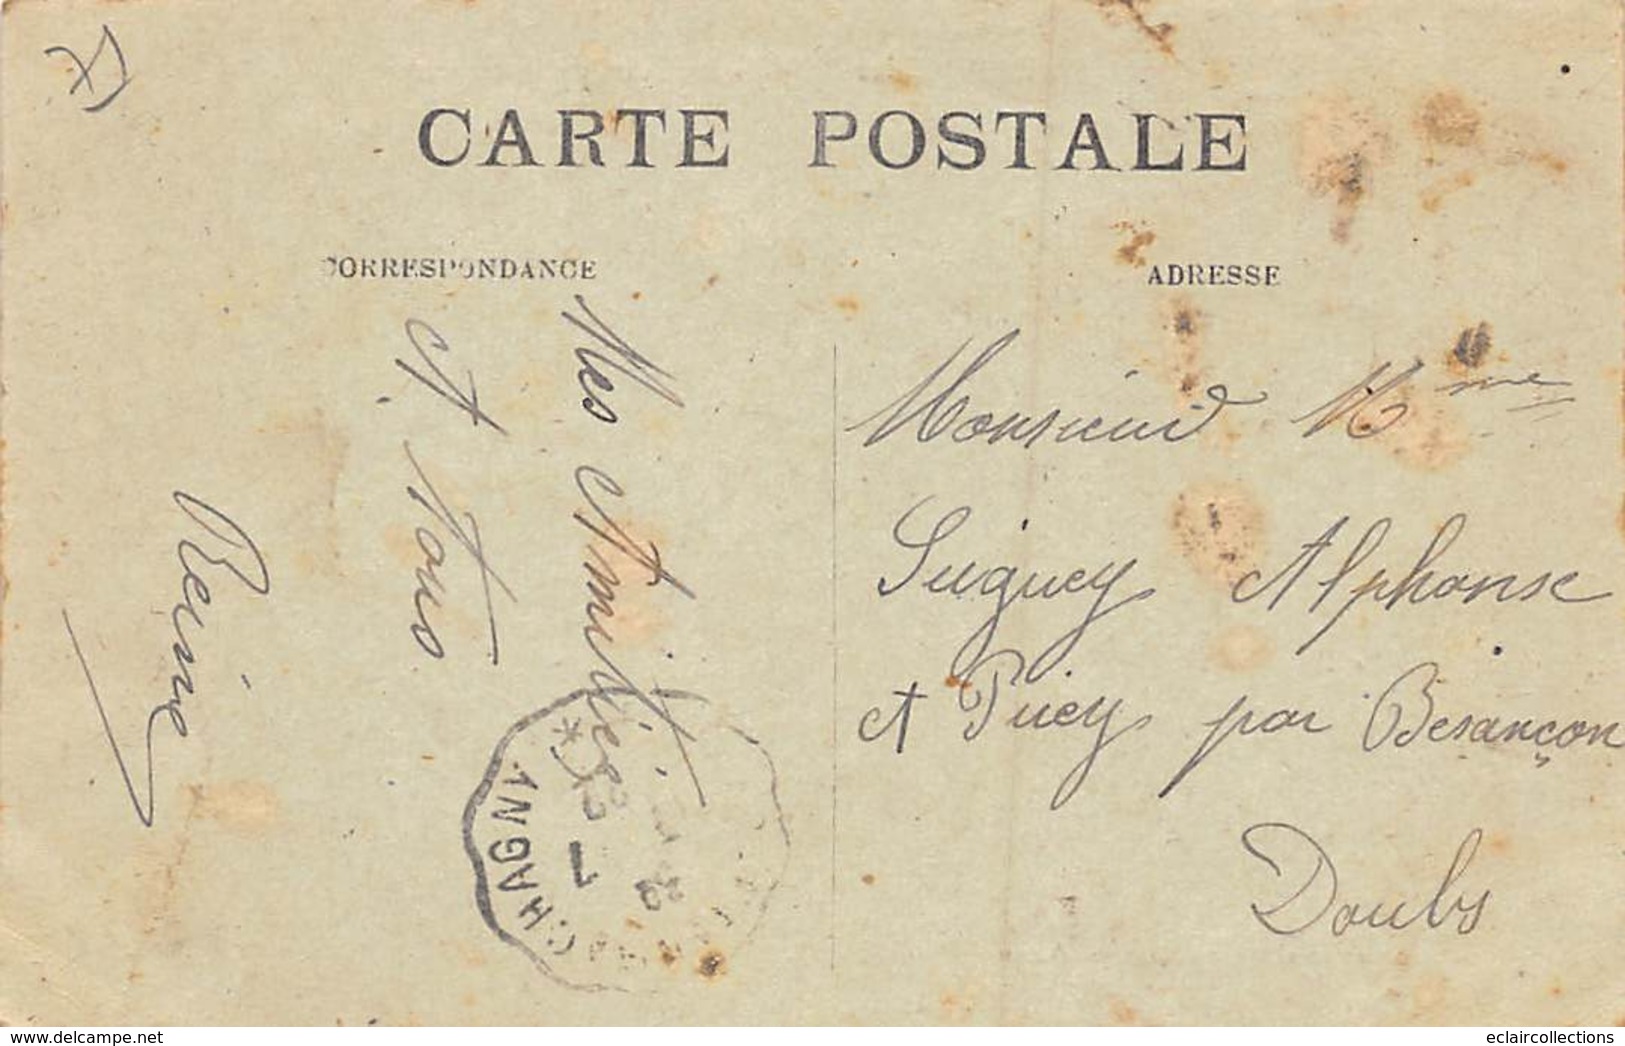 CARTE POSTALE
CORRESPONDANCE
ADRESSE
Mes Amitiés
A. Tous
Reine
Monsieur Mme
Suguey Alphonse
A Pirey par Besançon
Doubs
CHAGNY
visitez notre site web:
eclaircollections